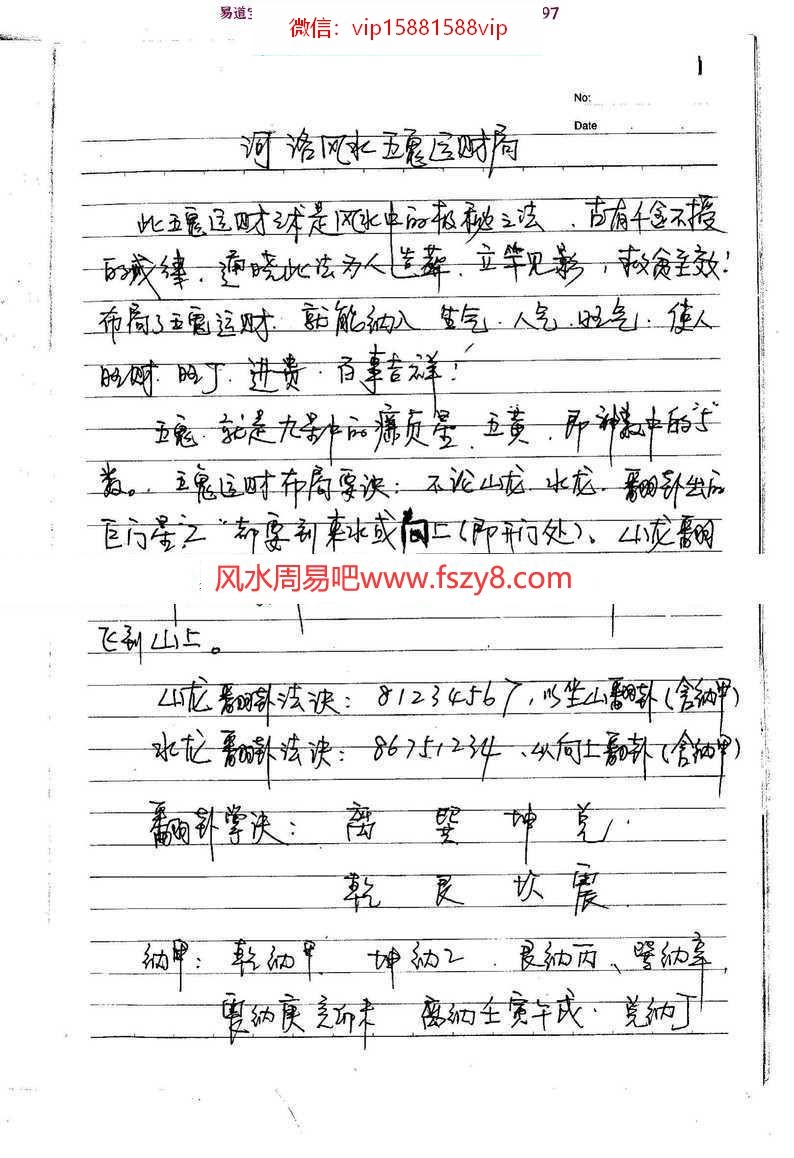 易道
微信：vip15881588vip
97
1
No:
Date
河洛风水五鬼运财局
此五鬼运财之术是风水中的极秘之法、古有千金不授
的戒律，通晓此法为人造葬，立竿见影，救贫至效！
布局了五鬼运财．就能纳入生气．人气．旺气．使人
旺财．旺丁．进贵．百事吉祥！
五鬼．就是九星中的廉贞星、五黄、即神数中的"5"
数。五鬼运财布局要诀：不论山龙．水龙．翻卦出后
巨门星"2"都要到来水或向上（即开门处）。山龙翻
风水周易吧www.fszy8.com
飞到山上。
山龙翻卦法诀：81234567，以坐山翻卦（含纳甲）
水龙翻卦法诀：86751234、以向上翻卦（含纳甲）
翻卦掌诀：离 巽 坤 兑．
乾 艮 坎 震
纳甲：乾纳甲．坤纳乙．艮纳丙、巽纳辛，
震纳庚亥卯未 离纳壬寅午戌．兑纳丁